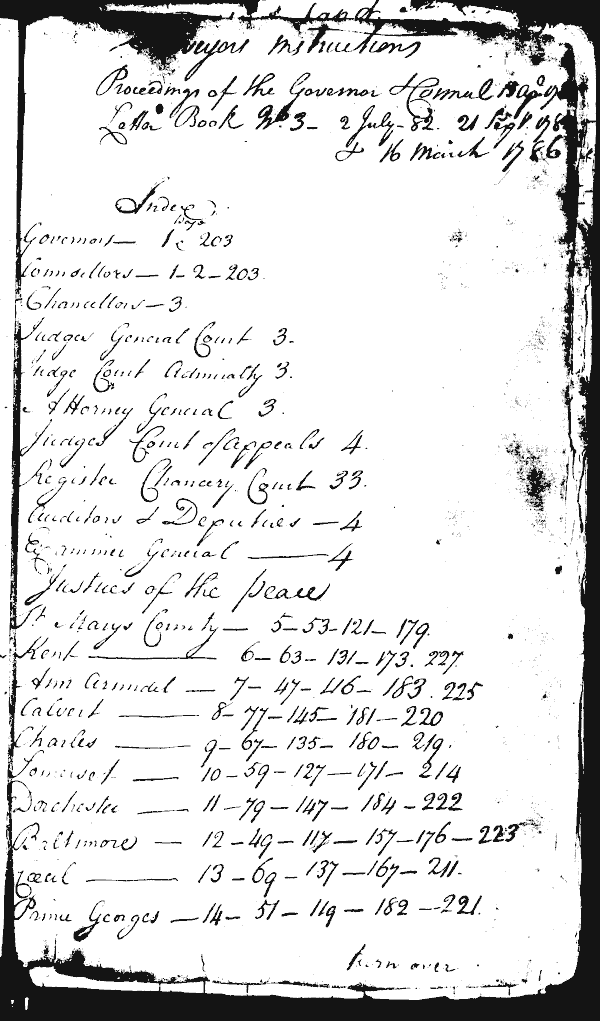 Land
Instructions
Proceedings of the Governor & Council
Letter Book No 3 - 2 July - 82. 21 Sept. 178
& 16 March 1786
Index
Page
Governors — 1 & 203
Counsellors — 1 - 2 - 203
Chancellors — 3.
Judges General Court 3.
Judge Court Admiralty 3.
Attorney General 3.
Judges Court of Appeals 4.
Register Chancery Court 33.
Auditors & Deputies — 4
Examiner General — 4
Justices of the peace
St Marys County — 5 - 53 - 121 - 179.
Kent — 6 - 63 - 131 - 173. 227
Ann Arundel — 7 - 47 - 116 - 183. 225
Calvert — 8 - 77 - 145 - 181 - 220
Charles — 9 - 67 - 135 - 180 - 219.
Somerset — 10 - 59 - 127 - 171 - 214
Dorchester — 11 - 79 - 147 - 184 - 222
Baltimore — 12 - 49 - 117 - 157 - 176 - 223
Cecil — 13 - 69 - 137 - 167 - 211.
Prince Georges — 14 - 51 - 119 - 182 - 221.
turn over